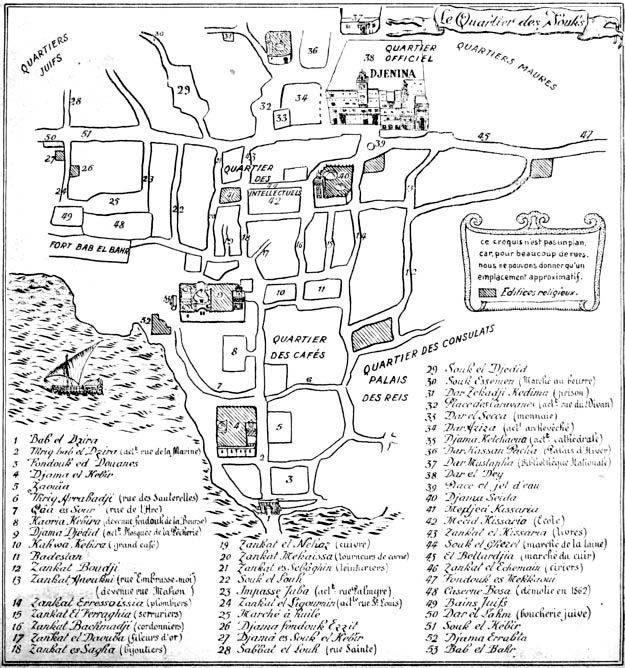 Le Quartier des Souks
QUARTIERS
JUIFS
QUARTIER
OFFICIEL
DJENINA
QUARTIERS MAURES
QUARTIER
DES
INTELLECTUELS
FORT BAB EL BAHR
ce croquis n'est pas un plan,
car, pour beaucoup de rues,
nous ne pouvons donner qu'un
emplacement approximatif.
Edifices religieux.
QUARTIER
DES CAFÉS
QUARTIER DES CONSULATS
PALAIS
DES REIS
1 Bab el Dzira
2 Thrig bab el Dzira (actt rue de la Marine)
3 Fondouk ed Douanes
4 Djama el Kebir
5 Zaouïa
6 Thrig Arrabadji (rue des Sauterelles)
7 Qaâ es Sour (rue de l'Arc)
8 Kaoria Kebira (devenue fondouk de la Bourse)
9 Djama Djedid (actt Mosquée de la Pêcherie)
10 Kahwa Kebira (grand café)
11 Badestan
12 Zankat Boudji
13 Zankat (rue Embrasse-moi)
(devenue rue Mahon)
14 Zankat Erressaissia (plombiers)
15 Zankat el Ferraghia (serruriers)
16 Zankat Bachmadji (cordonniers)
17 Zankat el Daouda (fileurs d'or)
18 Zankat es Sagha (bijoutiers)
19 Zankat el Nehas (cuivre)
20 Zankat Mekaissa (tourneurs de corne)
21 Zankat es Sebaghin (teinturiers)
22 Souk el Louh
23 Impasse Juba (actt rue Palmyre)
24 Zankat el Ligoumin (actt rue St Louis)
25 Marché à huile
26 Djama fondouk Ezzit
27 Djama es Souk el Kebir
28 Sabbat el Louh (rue Sainte)
29 Souk el Djedid
30 Souk Essemen (Marché au beurre)
31 Dar Zekadji Kedima (prison)
32 Place des caravanes (actt rue du Divan)
33 Dar el Secca (monnaie)
34 Dar Aziza (actt archevêché)
35 Djama Ketchaoua (actt cathédrale)
36 Dar Hassan Pacha (Palais d'Hiver)
37 Dar Mustapha (Bibliothèque Nationale)
38 Dar el Dey
39 Place et jet d'eau
40 Djama Seida
41 Kissaria
42 Mecid Kissaria (École)
43 Zankat el Kissaria (livres)
44 Souk el Ghezel (marché de la laine)
45 El Belladjia (marché du cuir)
46 Zankat el Echemain (ciriers)
47 Fondouk es Mekkaoui
48 Caserne Bosa (démolie en 1862)
49 Bains Juifs
50 Dar el Lahm (boucherie juive)
51 Souk el Kebir
52 Djama Errabta
53 Bab el Bahr